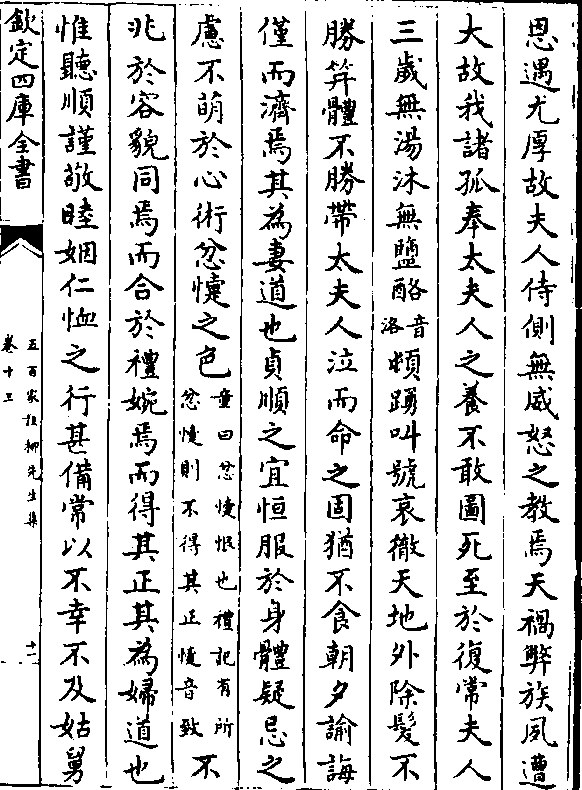 恩遇尤厚故夫人侍側無威怒之教焉天禍弊族夙遭
大故我諸孤奉太夫人之養不敢圖死至於復常夫人
三歲無湯沐無鹽酪音洛頰踴叫號哀徹天地外除髮不
勝笄體不勝帶太夫人泣而命之固猶不食朝夕諭誨
僅而濟焉其為妻道也貞順之宜恒服於身體疑忌之
慮不萌於心術忿懥之色童曰忿懥恨也禮記有所忿懥則不得其正懥音致不
兆於容貌同焉而合於禮婉焉而得其正其為婦道也
惟聽順謹敬睦姻仁恤之行甚備常以不幸不及姑舅
欽定四庫全書
五百家註柳先生集
卷十三
十一